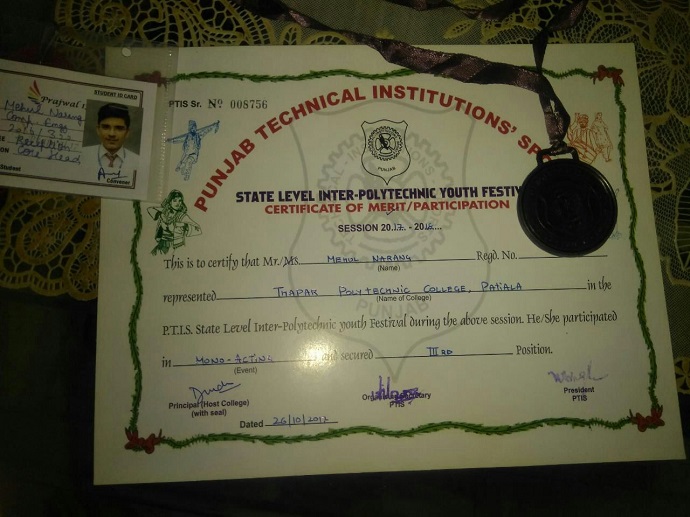 STUDENT ID CARD
Prajwal
Mehul Narang
Student
Core Head
Convener
PTIS Sr. Nº 008756
PUNJAB TECHNICAL INSTITUTIONS' SP
PUNJAB
STATE LEVEL INTER-POLYTECHNIC YOUTH FESTIV
CERTIFICATE OF MERIT/PARTICIPATION
SESSION 2017 - 2018
This is to certify that Mr./Ms. MEHUL NARANG Regd. No.
(Name)
represented THAPAR POLYTECHNIC COLLEGE, PATIALA in the
(Name of College)
PUNJAB
P.T.I.S. State Level Inter-Polytechnic youth Festival during the above session. He/She participated
in MONO-ACTING and secured IIIRD Position.
(Event)
Principal (Host College)
(with seal)
PTIS
President
PTIS
Dated 26/10/2017